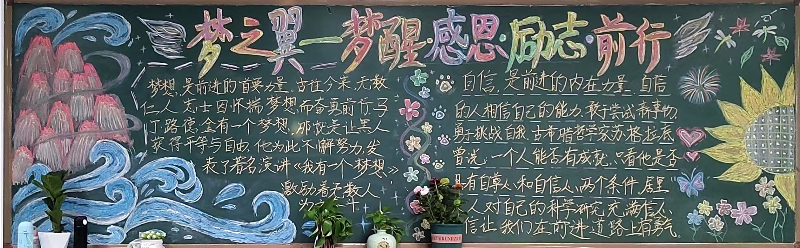 梦之翼—梦醒·感恩·励志·前行
梦想,是前进的首要力量,古往今来,无数
仁人志士因怀揣梦想而奋勇前行。马
丁路德金有一个梦想,那就是让黑人
获得平等与自由,他为此不懈努力,发
表了著名演讲《我有一个梦想》
激励着无数人
为
自信,是前进的内在力量,自信
的人相信自己的能力,敢于尝试新事物,
勇于挑战自我。古希腊哲学家苏格拉底
曾说:一个人能否有成就,只看他是否
具有自尊心和自信心两个条件。居里
人对自己的科学研究充满信
信让我们在前进道路上有勇气